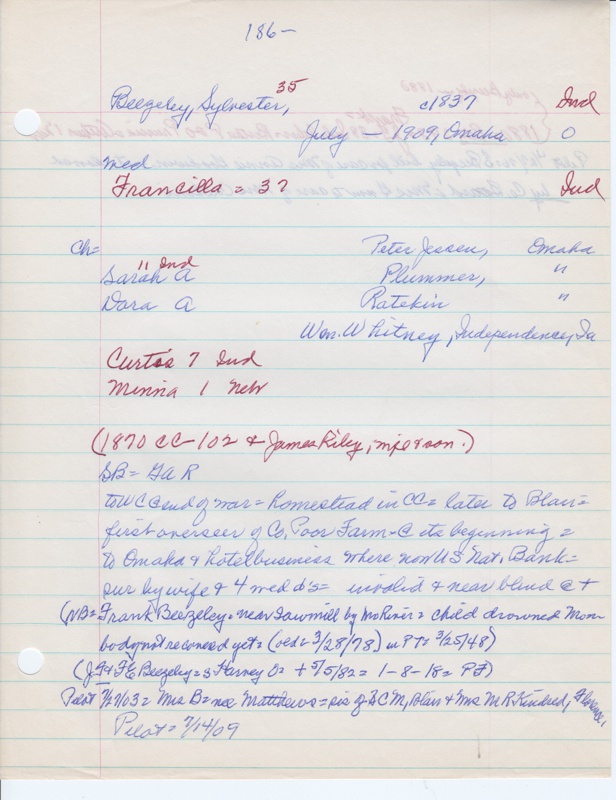 186-
Beezeley, Sylvester, 35 c1837 Ind
July - 1909, Omaha O
med
Francilla = 32 Ind
Ch= Peter Jessen, Omaha
Sarah A 11 Ind Plummer, "
Dora A Ratekin "
Wm. Whitney, Independence, Ia
Curtis 7 Ind
Minna 1 Neb
(1870 CC-102 + James Riley, wife & son.)
SB = GAR
to WC end of war = homestead in CC = later to Blair =
first overseer of Co. Poor Farm - @ its beginning =
to Omaha & hotel business where now US Nat. Bank =
sur by wife & 4 med d's = invalid & near blind @ +
(NB = Frank Beezeley = near sawmill by Mo River = child drowned Mon
body not recovered yet = (oed = 3/28/78) in PT = 3/25/48)
(J. F & F E Beezeley = s Harney O = + 5/5/82 = 1-8-18 = PF)
Pilot 7/2/03 = Mrs B = nee Matthews = sis of A C M, Blair & Mrs M R Kindred, Florence,
Pilot = 7/14/09